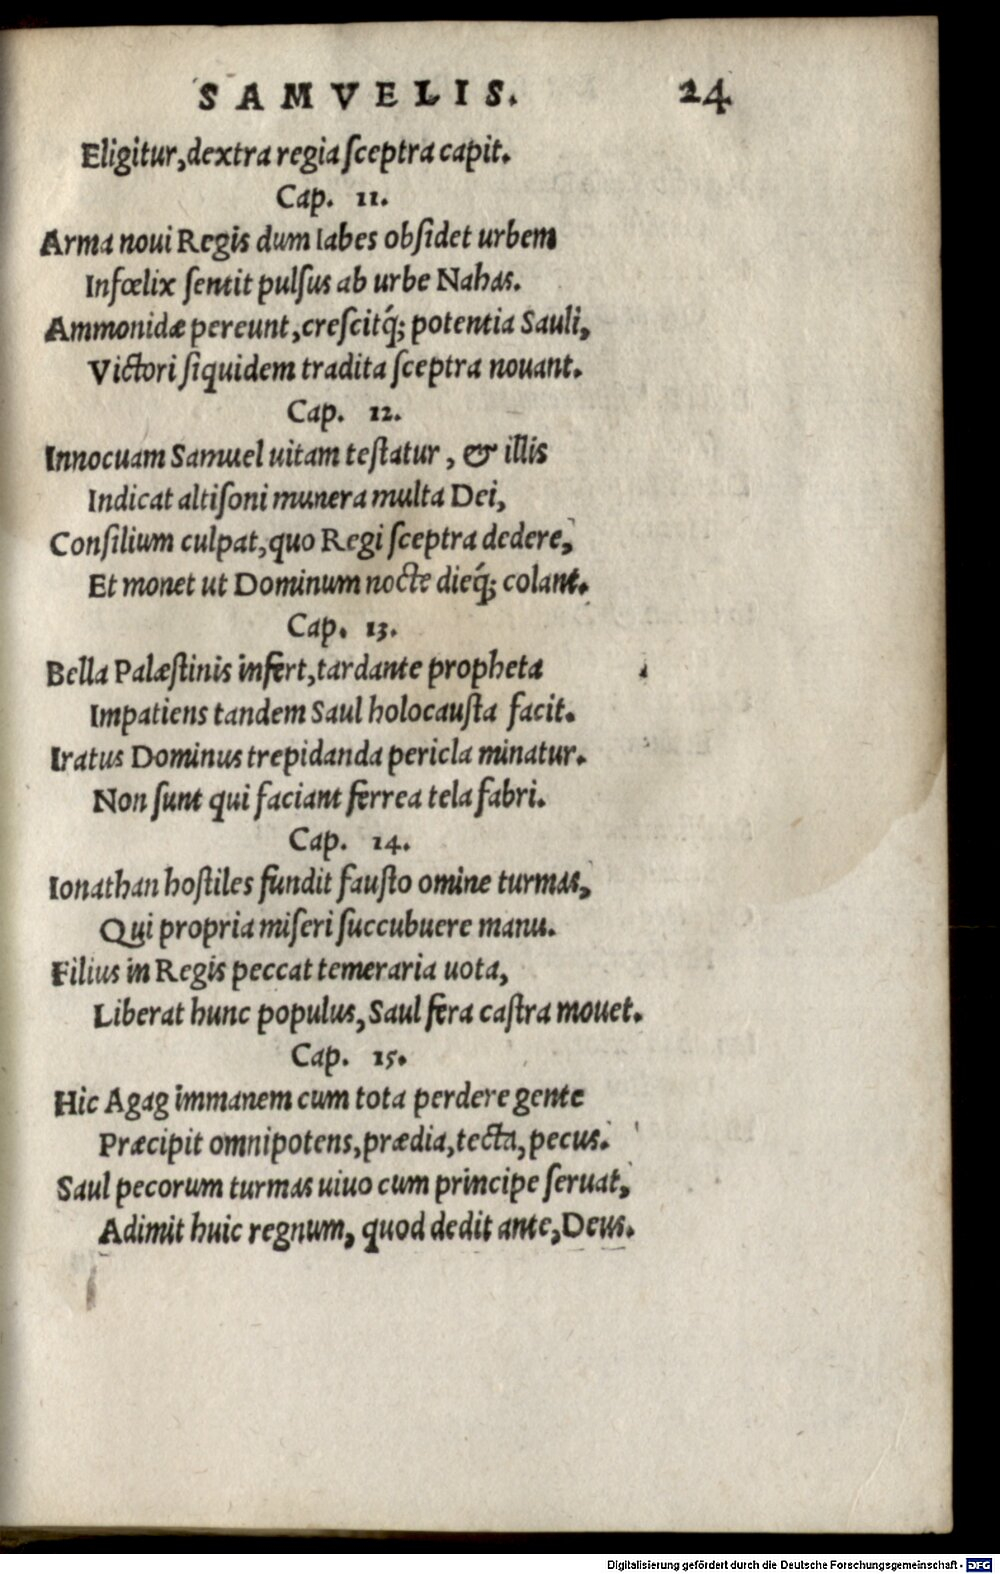 SAMVELIS. 24
Eligitur, dextra regia ſceptra capit.
Cap. 11.
Arma noui Regis dum Iabes obſidet urbem
Infœlix ſentit pulſus ab urbe Nahas.
Ammonidæ pereunt, creſcitq́; potentia Sauli,
Victori ſiquidem tradita ſceptra nouant.
Cap. 12.
Innocuam Samuel uitam teſtatur, & illis
Indicat altiſoni munera multa Dei,
Conſilium culpat, quo Regi ſceptra dedere,
Et monet ut Dominum nocte dieq́; colant.
Cap. 13.
Bella Palæſtinis infert, tardante propheta
Impatiens tandem Saul holocauſta facit.
Iratus Dominus trepidanda pericla minatur.
Non ſunt qui faciant ferrea tela fabri.
Cap. 14.
Ionathan hoſtiles fundit fauſto omine turmas,
Qui propria miſeri ſuccubuere manu.
Filius in Regis peccat temeraria uota,
Liberat hunc populus, Saul fera caſtra mouet.
Cap. 15.
Hic Agag immanem cum tota perdere gente
Præcipit omnipotens, prædia, tecta, pecus.
Saul pecorum turmas uiuo cum principe ſeruat,
Adimit huic regnum, quod dedit ante, Deus.
Digitalisierung gefördert durch die Deutsche Forschungsgemeinschaft - DFG